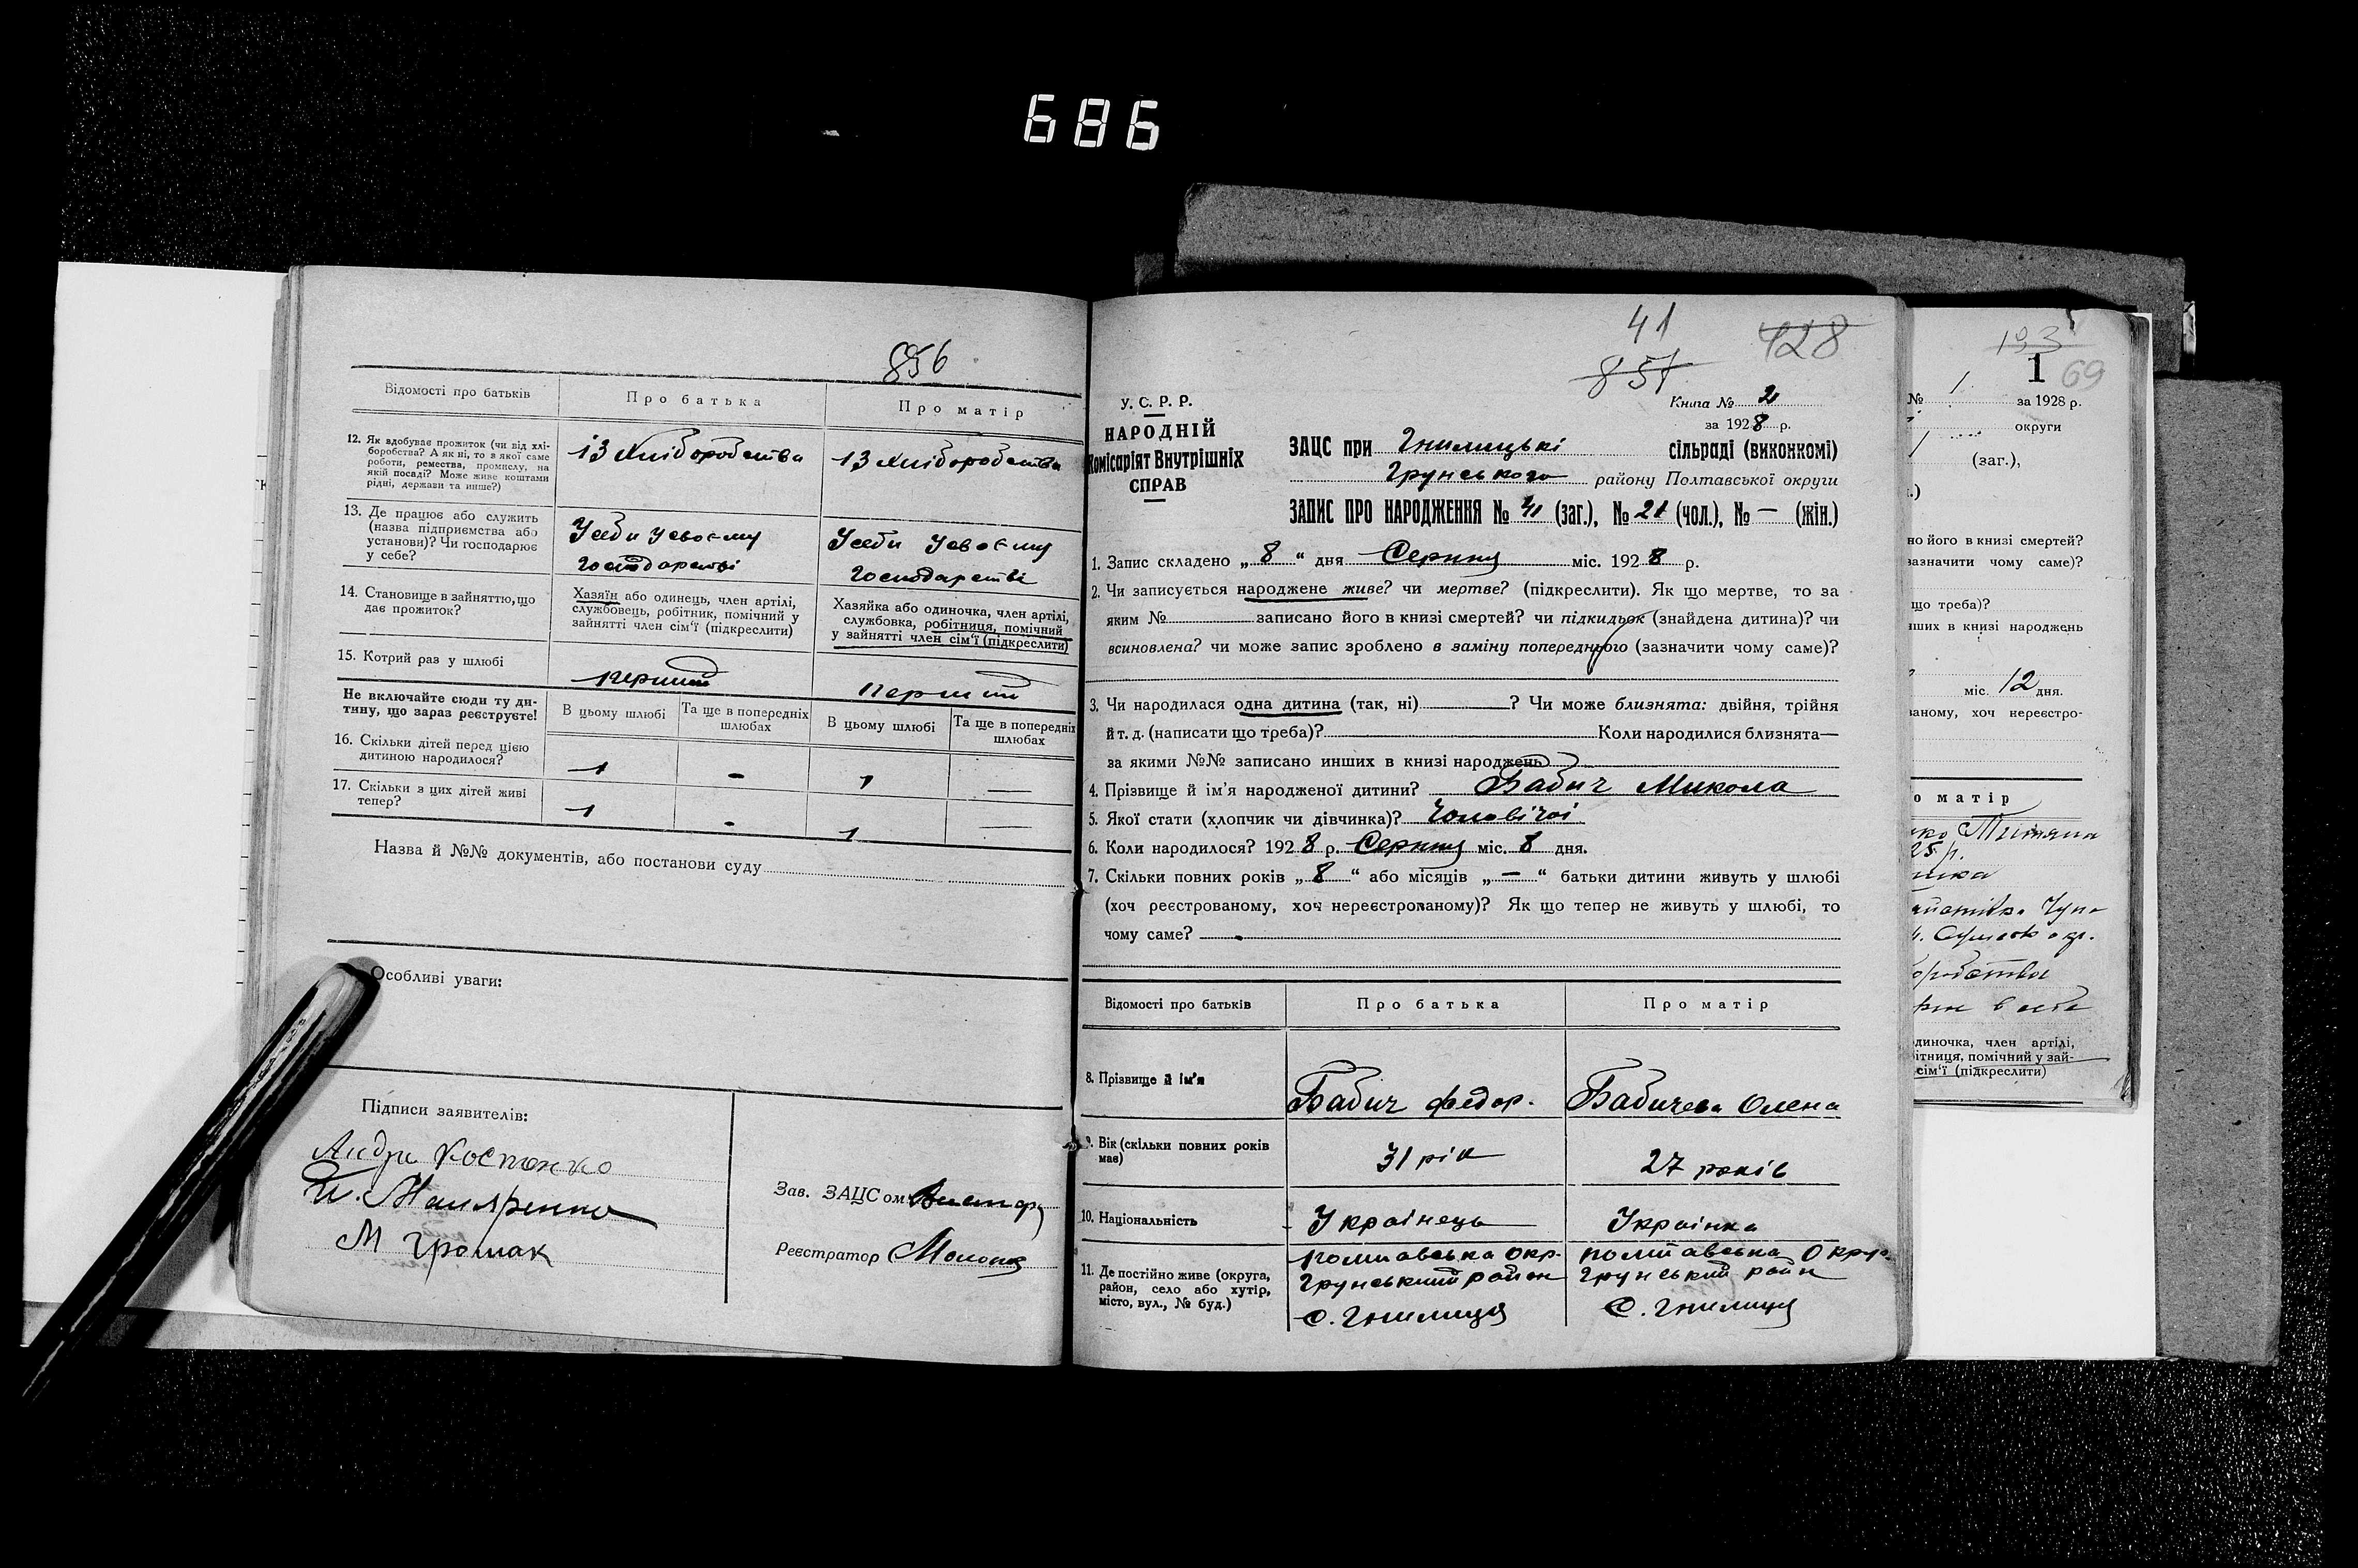 686
856
Відомості про батьків
Про батька
Про матір
12. Як здобуває прожиток (чи від хлі-
боробства? А як ні, то з якої саме
роботи, ремества, промислу, на
якій посаді? Може живе коштами
рідні, держави та инше?)
Із хліборобства
Із хліборобства
13. Де працює або служить
(назва підприємства або
установи)? Чи господарює
у себе?
Усеби усвоєму
господарстві
Усеби усвоєму
господарстві
14. Становище в зайняттю, що
дає прожиток?
Хазяїн або одинець, член артілі,
службовець, робітник, помічний у
зайнятті член сім'ї (підкреслити)
Хазяйка або одиночка, член артілі,
службовка, робітниця, помічний
у зайнятті член сім'ї (підкреслити)
15. Котрий раз у шлюбі
перший
перший
Не включайте сюди ту ди-
тину, що зараз реєструєте!
В цьому шлюбі
Та ще в попередніх
шлюбах
В цьому шлюбі
Та ще в попередніх
шлюбах
16. Скільки дітей перед цією
дитиною народилося?
1 - 1 —
17. Скільки з цих дітей живі
тепер?
1 - 1 —
Назва й №№ документів, або постанови суду
Особливі уваги:
Підписи заявителів:
Костенко
М Громак
Зав. ЗАЦСом
Реєстратор
41
857
428
У. С. Р. Р.
НАРОДНІЙ
Комісаріят Внутрішніх
СПРАВ
Книга № 2
за 1928 р.
ЗАЦС при Гнилицькі сільраді (виконкомі)
Грунського району Полтавської округи
ЗАПИС ПРО НАРОДЖЕННЯ № 41 (заг.), № 21 (чол.), № — (жін.)
1. Запис складено „8“ дня Серпня міс. 1928 р.
2. Чи записується народжене живе? чи мертве? (підкреслити). Як що мертве, то за
яким № записано його в книзі смертей? чи підкидьок (знайдена дитина)? чи
всиновлена? чи може запис зроблено в заміну попереднього (зазначити чому саме)?
3. Чи народилася одна дитина (так, ні) ? Чи може близнята: двійня, трійня
й т. д. (написати що треба)? Коли народилися близнята—
за якими №№ записано инших в книзі народжень
4. Прізвище й ім'я народженої дитини? Бабич Микола
5. Якої стати (хлопчик чи дівчинка)? Чоловічої
6. Коли народилося? 1928 р. Серпня міс. 8 дня.
7. Скільки повних років „8“ або місяців „—“ батьки дитини живуть у шлюбі
(хоч реєстрованому, хоч нереєстрованому)? Як що тепер не живуть у шлюбі, то
чому саме? -
Відомості про батьків
Про батька
Про матір
8. Прізвище й ім'я
Бабич Федор.
Бабичева Олена
9. Вік (скільки повних років
має)
31 рік
27 років
10. Національність
Українець
Українка
11. Де постійно живе (округа,
район, село або хутір,
місто, вул., № буд.)
Полтавська окр.
Грунський район
с. Гнилиця
Полтавська Округ.
Грунський райн
с. Гнилиця
193
1
69
№ 1. за 1928 р.
округи
(заг.),
но його в книзі смертей?
зазначити чому саме)?
що треба)?
нших в книзі народжень
міс. 12 дня.
ваному, хоч нереєстро-
о матір
25 р.
диночка, член артілі,
ітниця, помічний у зай-
сім'ї (підкреслити)